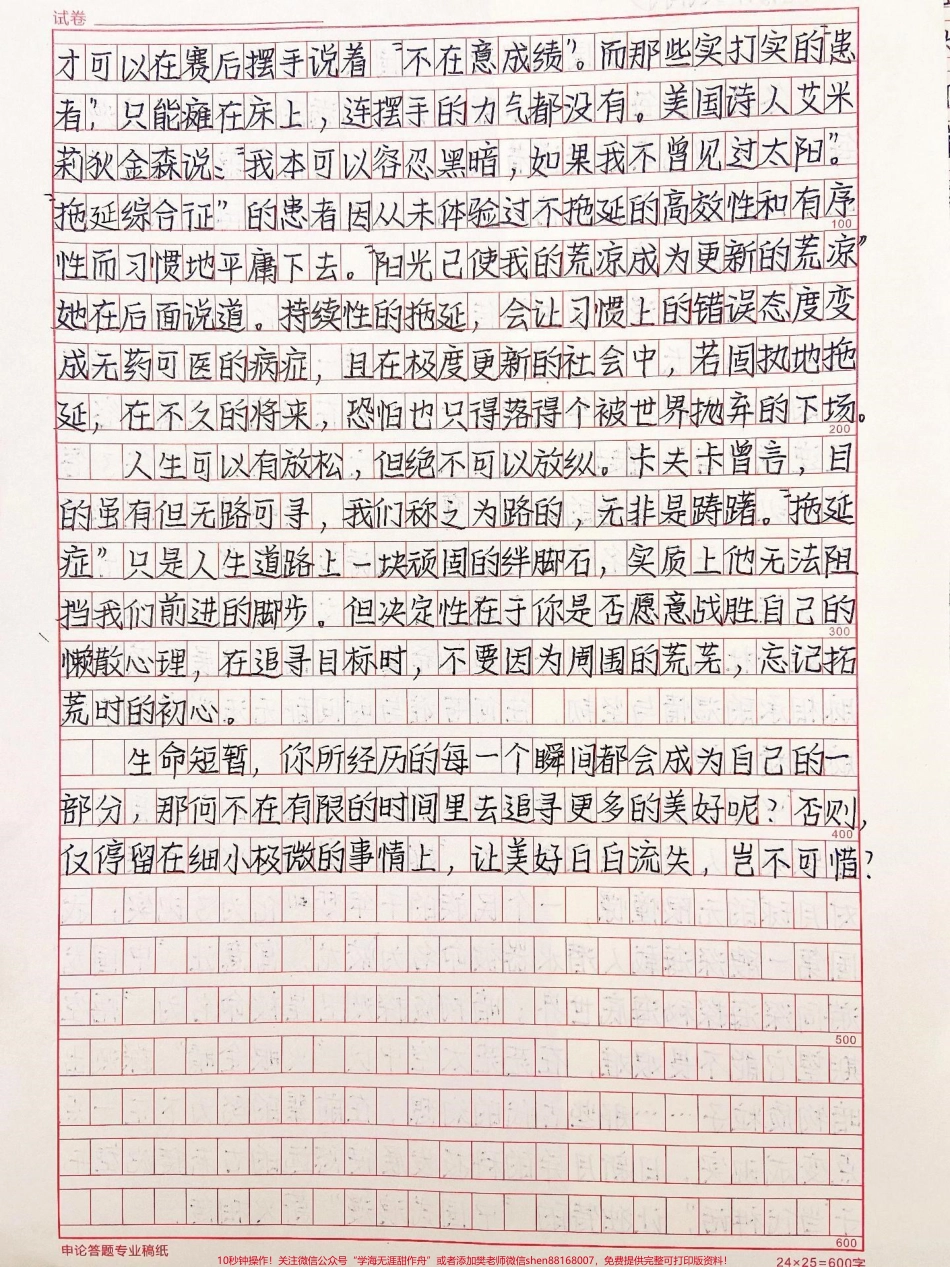 试卷
才可以在赛后摆手说着“不在意成绩”。而那些实打实的“患
者”，只能瘫在床上，连摆手的力气都没有。美国诗人艾米
莉狄金森说：“我本可以容忍黑暗，如果我不曾见过太阳”。
“拖延综合征”的患者因从未体验过不拖延的高效性和有序
100
性而习惯地平庸下去。“阳光已使我的荒凉成为更新的荒凉”
她在后面说道。持续性的拖延，会让习惯上的错误态度变
成无药可医的病症，且在极度更新的社会中，若固执地拖
延，在不久的将来，恐怕也只得落得个被世界抛弃的下场。
200
人生可以有放松，但绝不可以放纵。卡夫卡曾言，目
的虽有但无路可寻，我们称之为路的，无非是踌躇。“拖延
症”只是人生道路上一块顽固的绊脚石，实质上他无法阻
挡我们前进的脚步。但决定性在于你是否愿意战胜自己的
300
懒散心理，在追寻目标时，不要因为周围的荒芜，忘记拓
荒时的初心。
生命短暂，你所经历的每一个瞬间都会成为自己的一
部分，那何不在有限的时间里去追寻更多的美好呢？否则，
400
仅停留在细小极微的事情上，让美好白白流失，岂不可惜？
500
600
申论答题专业稿纸
10秒钟操作！关注微信公众号“学海无涯甜作舟”或者添加樊老师微信shen88168007，免费提供完整可打印版资料！
24×25=600字